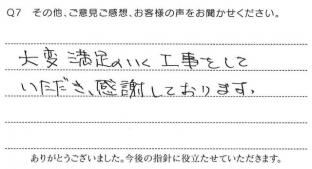 Q7 その他、ご意見ご感想、お客様の声をお聞かせください。
大変満足のいく工事をして
いただき、感謝しております。
ありがとうございました。今後の指針に役立たせていただきます。